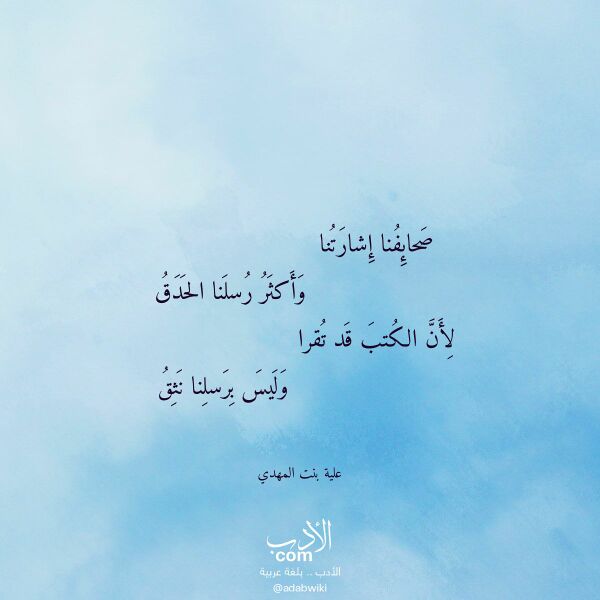 صَحائِفُنا إِشارَتُنا
وَأَكثَرُ رُسلَنا الحَدَقُ
لِأَنَّ الكُتبَ قَد تُقرا
وَلَيسَ بِرَسلِنا نَثِقُ
علية بنت المهدي
الأدب
com
الأدب .. بلغة عربية
@adabwiki